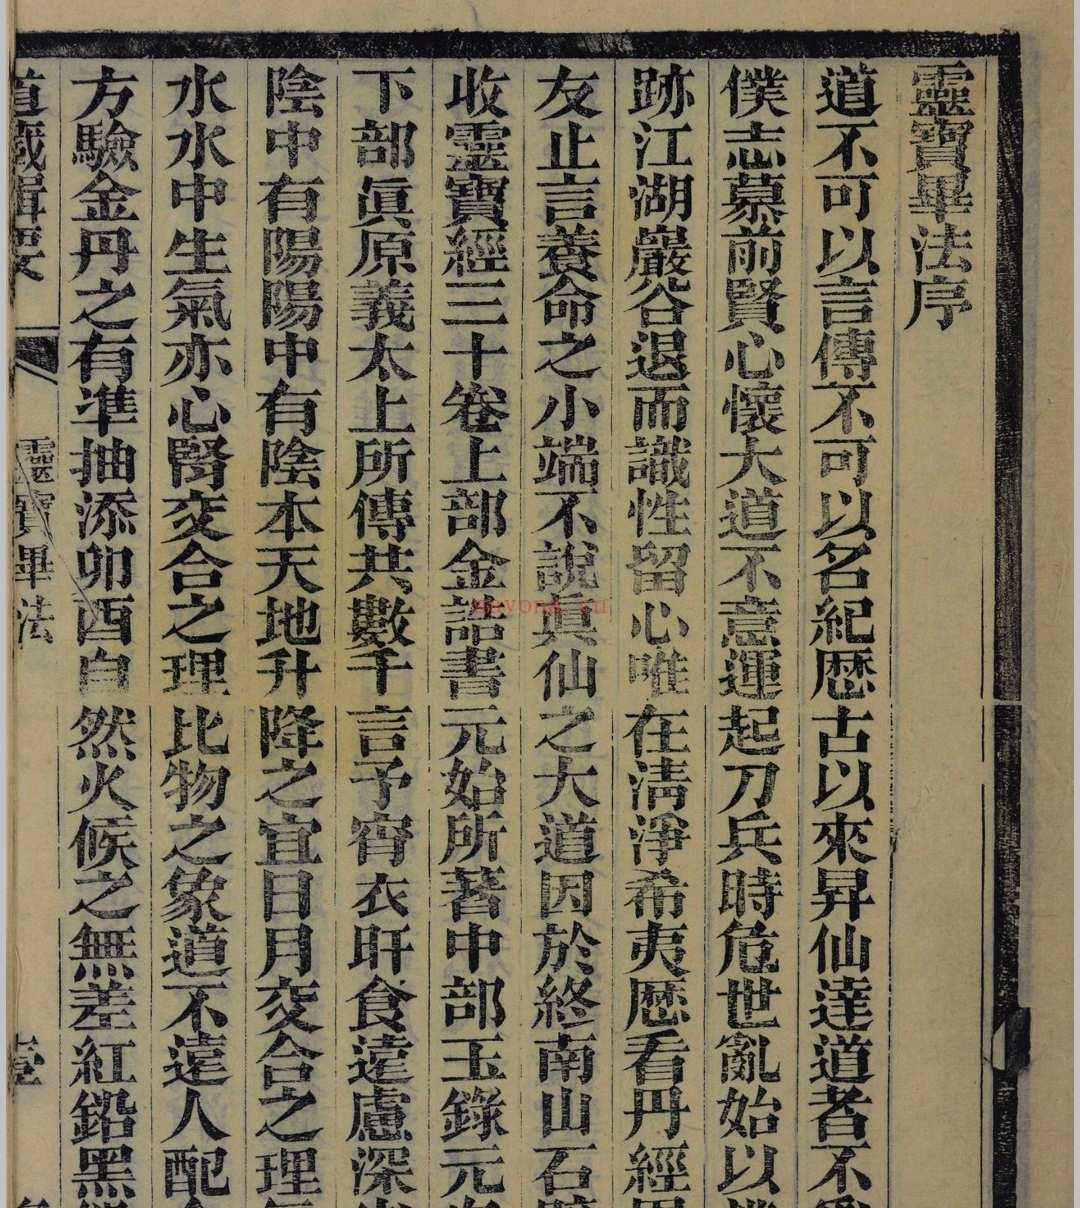 靈寶畢法序
道不可以言傳不可以名紀歷古以來昇仙達道者不
僕志慕前賢心懷大道不意運起刀兵時危世亂始以
跡江湖巖谷退而識性留心唯在淸淨希夷歷看丹經
友止言養命之小端不說眞仙之大道因於終南山石
收靈寶經三十卷上部金誥書元始所著中部玉錄元
下部眞原義太上所傳共數千言予宵衣旰食遠慮深
陰中有陽陽中有陰本天地升降之宜日月交合之理
水水中生氣亦心腎交合之理比物之象道不遠人配
方驗金丹之有準抽添卯酉自然火候之無差紅鉛黑
道藏輯要 靈寶畢法